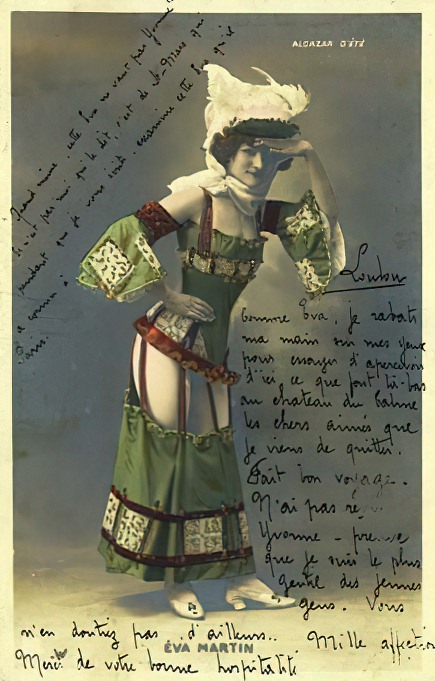 ALCAZAR D'ÉTÉ
Quand même, cette Eva ne vaut pas Yvonne
Ce n'est pas moi qui le dit, c'est de St-Mars qui
pendant que je vous écrit examine cette Eva qu'il
a connu à
Paris.
Loulou
Comme Eva, je rabats
ma main sur mes yeux
pour essayer d'apercevoir
d'ici ce que font là-bas
au chateau du Calme
les chers aimés que
je viens de quitter.
Fait bon voyage.
N'ai pas
Yvonne - preuve
que je suis le plus
gentil des jeunes
gens. Vous
n'en doutez pas d'ailleurs..
Mille affection
ÉVA MARTIN
Merci de votre bonne hospitalité